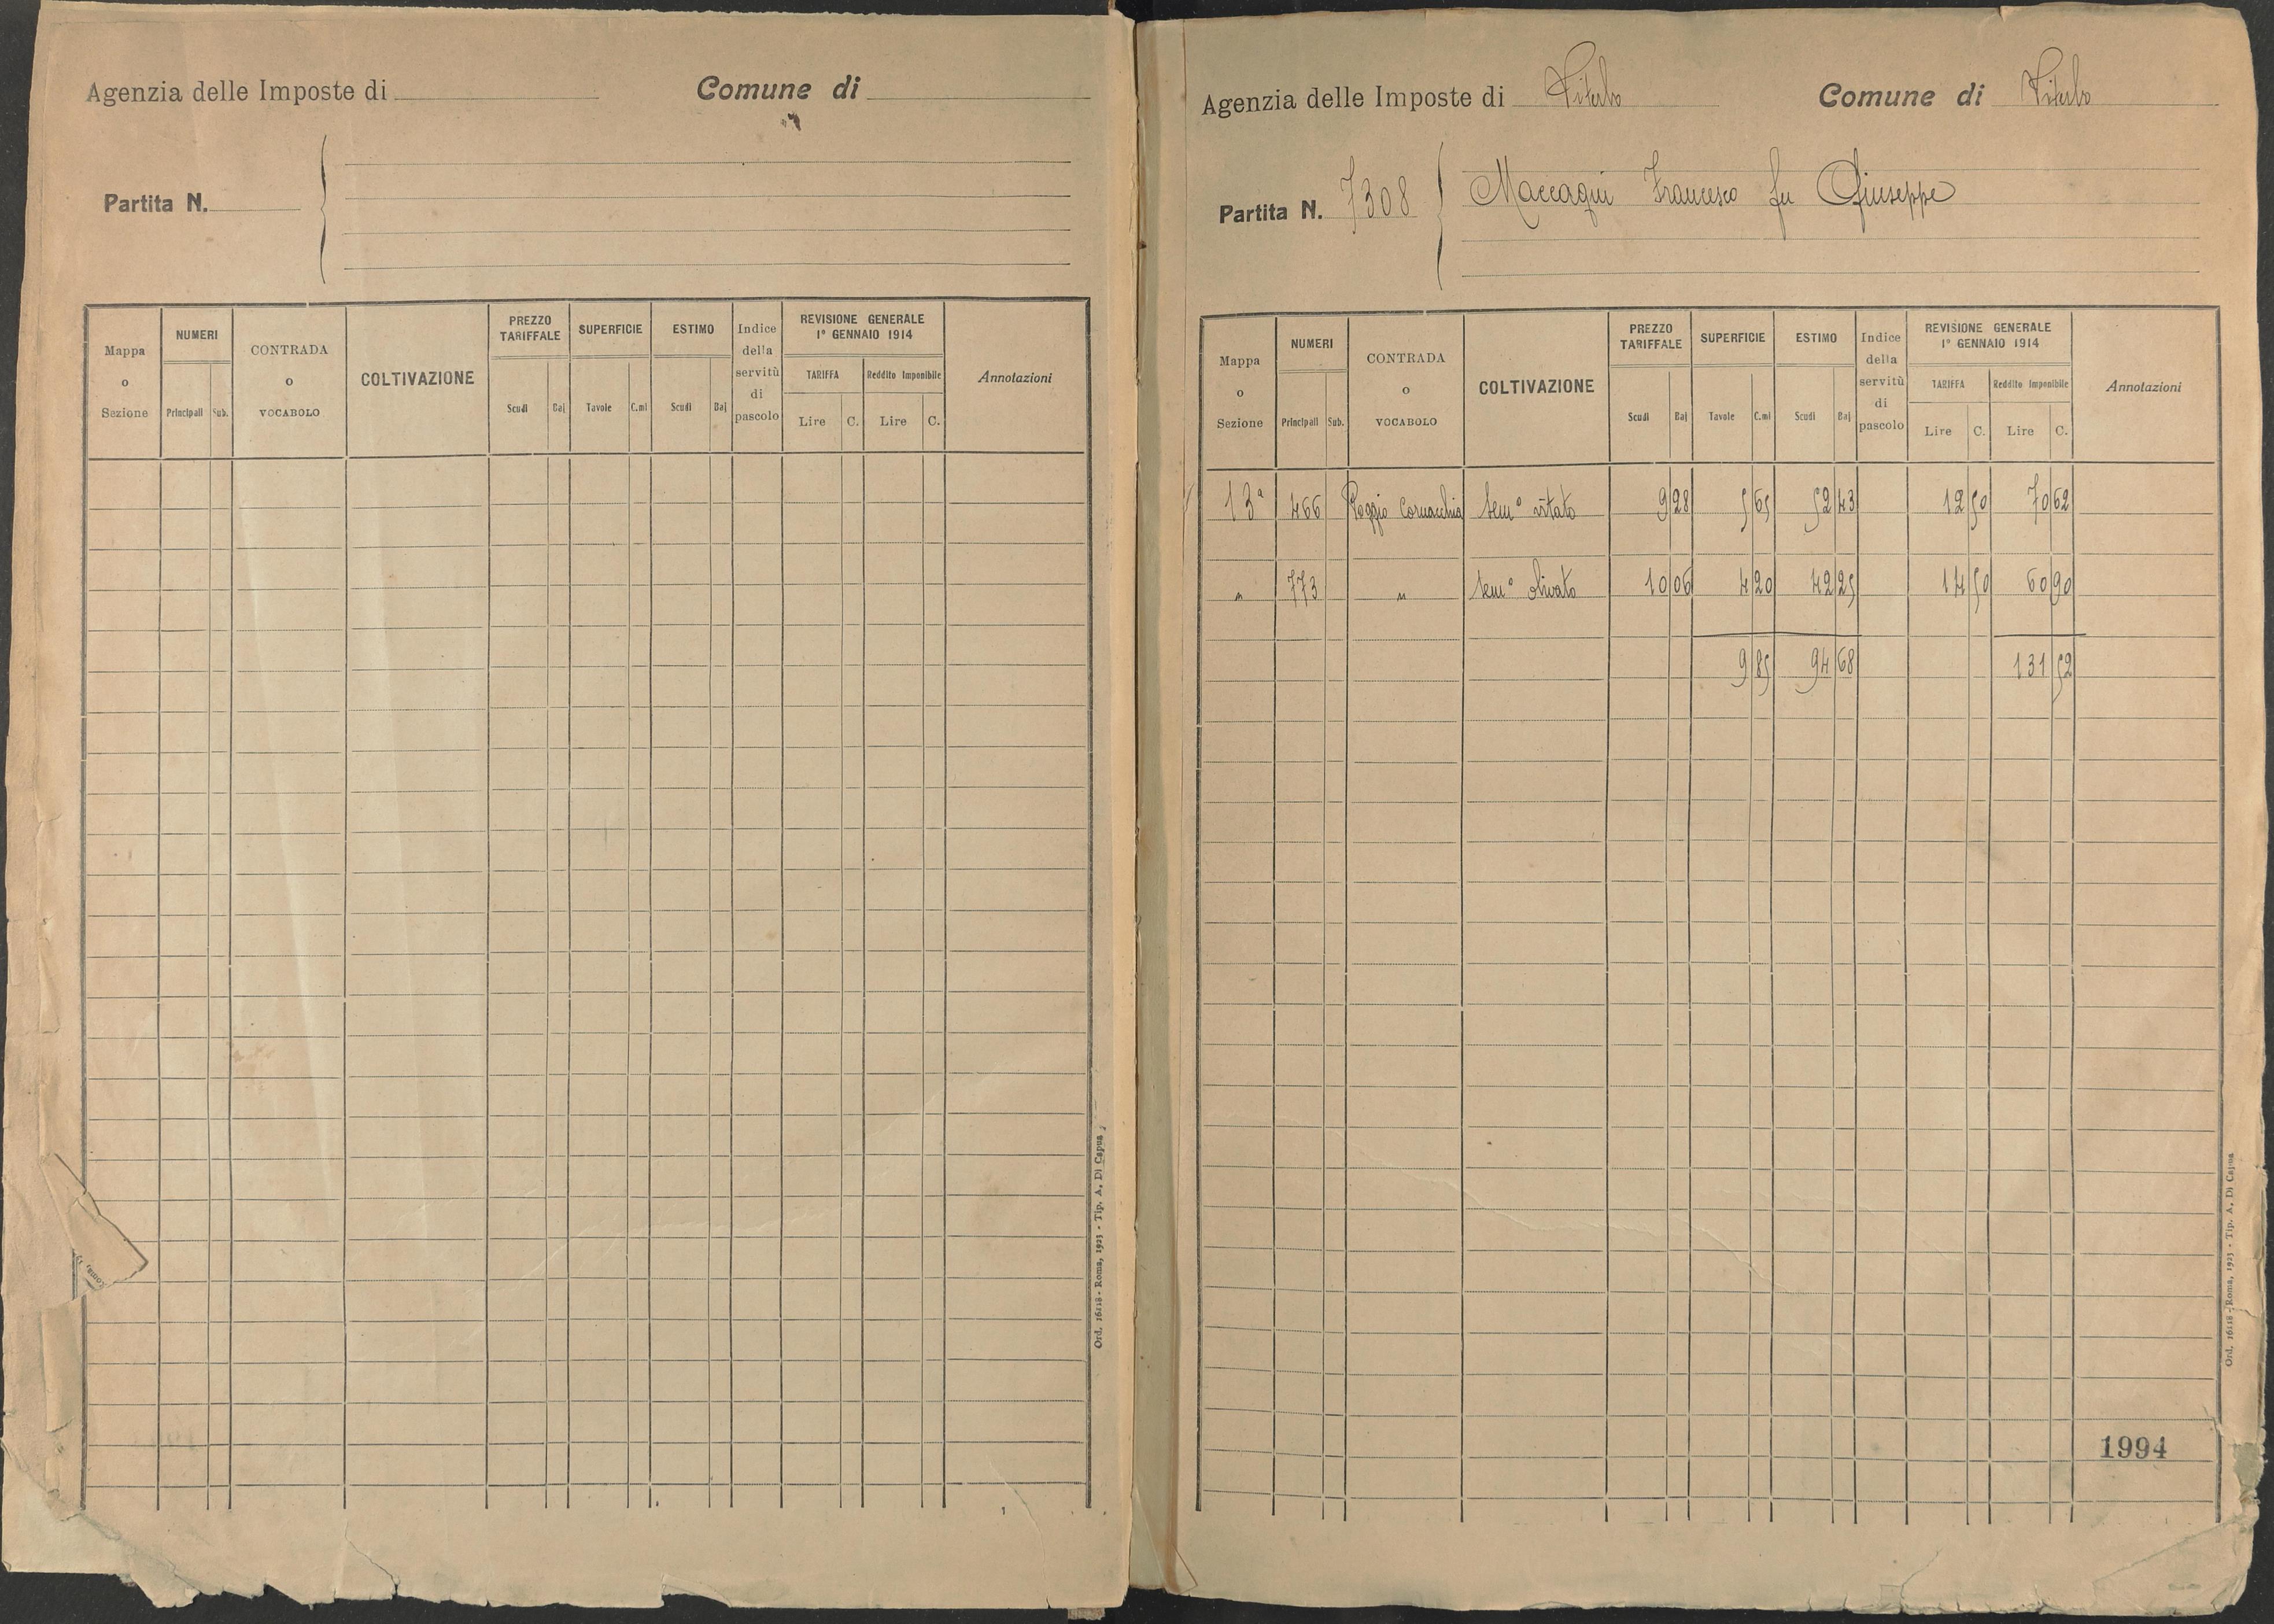 Agenzia delle Imposte di Comune di
Partita N.
Mappa o Sezione NUMERI Principali Sub. CONTRADA o VOCABOLO COLTIVAZIONE PREZZO TARIFFALE Scudi Baj SUPERFICIE Tavole C.mi ESTIMO Scudi Baj Indice della servitù di pascolo REVISIONE GENERALE 1° GENNAIO 1914 TARIFFA Lire C. Reddito Imponibile Lire C. Annotazioni
Ord. 16118 - Roma, 1923 - Tip. A. Di Capua
Agenzia delle Imposte di Viterbo Comune di Viterbo
Partita N. 7308 Maccaqui Francesco fu Giuseppe
Mappa o Sezione NUMERI Principali Sub. CONTRADA o VOCABOLO COLTIVAZIONE PREZZO TARIFFALE Scudi Baj SUPERFICIE Tavole C.mi ESTIMO Scudi Baj Indice della servitù di pascolo REVISIONE GENERALE 1° GENNAIO 1914 TARIFFA Lire C. Reddito Imponibile Lire C. Annotazioni
13ª 466 Poggio Cornacchia Semº vitato 9 28 5 65 52 43 12 50 70 62
" 773 " Semº olivato 10 06 4 20 42 25 14 50 60 90
9 85 94 68 131 52
1994
Ord. 16118 - Roma, 1923 - Tip. A. Di Capua